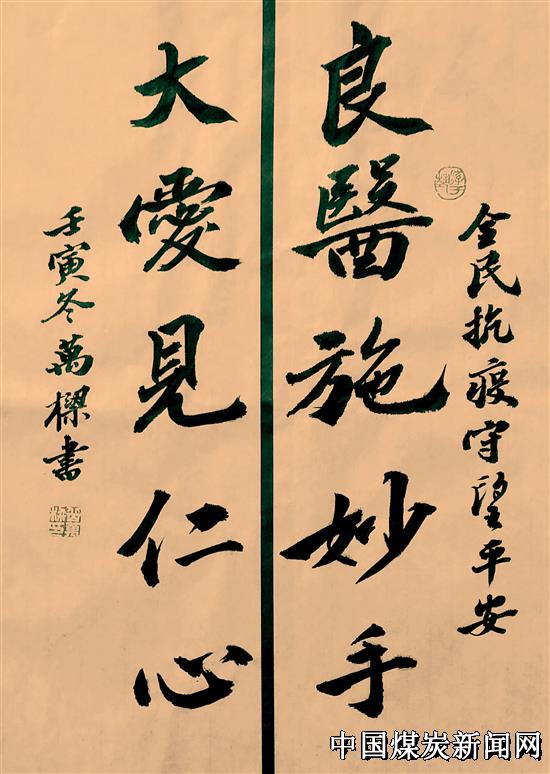 全民抗疫守望平安
良醫施妙手
大愛見仁心
壬寅冬萬樑書
中国煤炭新闻网